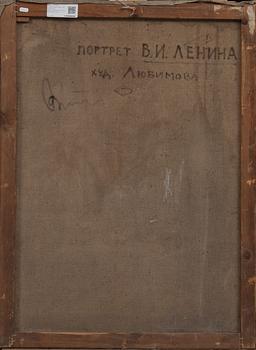 ПОРТРЕТ В.И. ЛЕНИНА
ХУД. ЛЮБИМОВА